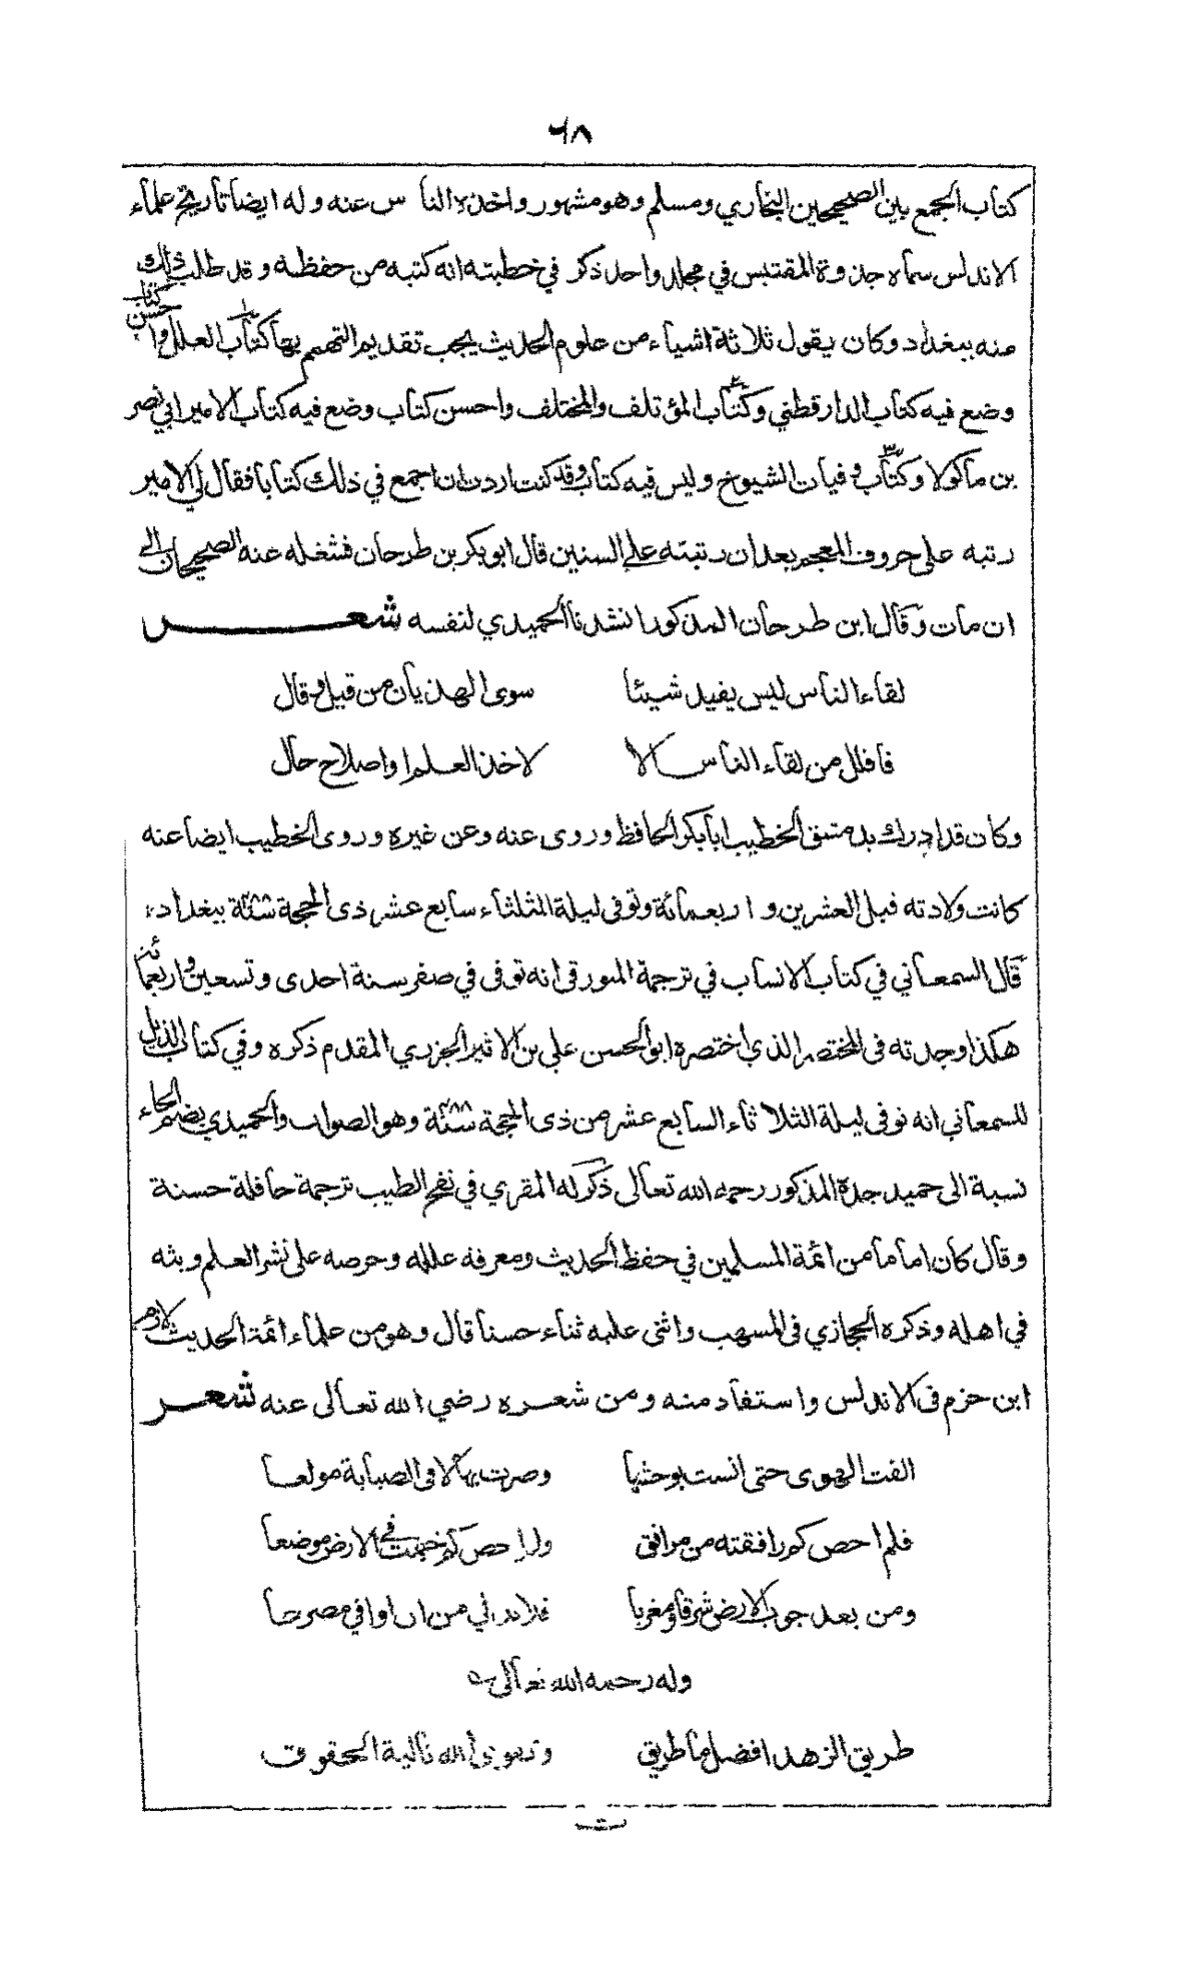 ٦٨
كتاب الجمع بين الصحيحين البخاري ومسلم وهو مشهور واخذه الناس عنه وله ايضا تاريخ علماء
الاندلس سماه جذوة المقتبس في مجلد واحد ذكر في خطبته انه كتبه من حفظه وقد طلب ذلك
منه ببغداد وكان يقول ثلاثة اشياء من علوم الحديث يجب تقديم التهمم بها كتاب العلل واحسن كتاب
وضع فيه كتاب الدارقطني وكتاب المؤتلف والمختلف واحسن كتاب وضع فيه كتاب الامير ابي نصر
بن ماكولا وكتاب وفيات الشيوخ وليس فيه كتاب وقد كنت اردت ان اجمع في ذلك كتابا فقال لي الامير
رتبه على حروف المعجم بعد ان رتبته على السنين قال ابوبكر بن طرحان فشغله عنه الصحيحان الى
ان مات وقال ابن طرحان المذكور انشدنا الحميدي لنفسه شعر
لقاء الناس ليس يفيد شيئا سوى الهذيان من قيل وقال
فاقلل من لقاء الناس الا لاخذ العلم او اصلاح حال
وكان قد ادرك بدمشق الخطيب ابابكر الحافظ وروى عنه وعن غيره وروى الخطيب ايضا عنه
كانت ولادته قبل العشرين و اربعمائة وتوفى ليلة الثلثاء سابع عشر ذى الحجة سنة ببغداد
قال السمعاني في كتاب الانساب في ترجمة المورقى انه توفى في صفر سنة احدى وتسعين واربعمائة
هكذا وجدته فى المختصر الذي اختصره ابو الحسن علي بن الاثير الجزري المقدم ذكره وفي كتاب الذيل
للسمعاني انه توفى ليلة الثلاثاء السابع عشر من ذى الحجة سنة ٤٨٨ وهو الصواب والحميدي بضم الحاء
نسبة الى حميد جده المذكور رحمه الله تعالى ذكر له المقري في نفح الطيب ترجمة حافلة حسنة
وقال كان اماما من ائمة المسلمين في حفظ الحديث ومعرفة علله وحرصه على نشر العلم وبثه
في اهله وذكره الحجازي فى المسهب واثنى عليه ثناء حسنا قال وهو من علماء ائمة الحديث لازم
ابن حزم فى الاندلس واستفاد منه ومن شعره رضي الله تعالى عنه شعر
الفت الهوى حتى انست بوحشها وصرت بها لا فى الصبابة مولعا
فلم احص كم رافقته من مرافق ولم احص كم خيمت في الارض موضعا
ومن بعد جوب الارض شرقا ومغربا فلا بد لي من ان اوافي مصرعا
وله رحمه الله تعالى
طريق الزهد افضل ما طريق وتقوى الله تالية الحقوق